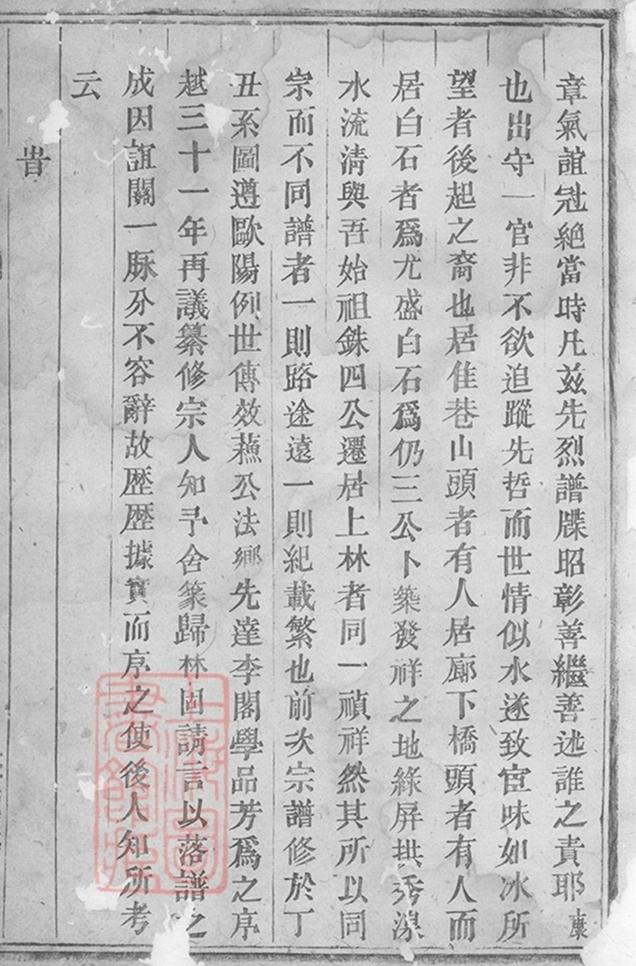 章氣誼冠絶當時凡兹先烈譜牒昭彰善繼善述誰之責耶康
也出守一官非不欲追蹤先哲而世情似水遂致宦味如冰所
望者後起之裔也居佳巷山頭者有人居廊下橋頭者有人而
居白石者爲尤盛白石爲仍三公卜築發祥之地綠屏拱秀深
水流清與吾始祖銖四公遷居上林者同一禎祥然其所以同
宗而不同譜者一則路途遠一則紀載繁也前次宗譜修於丁
丑系圖遵歐陽例世傳效蘓公法鄉先達李閣學品芳爲之序
越三十一年再議纂修宗人知予舍篆歸林固請言以落譜之
成因誼關一脉分不容辭故歷歷據實而序之使後人知所考
云
旹